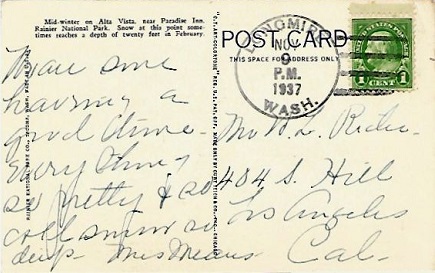 Mid-winter on Alta Vista, near Paradise Inn,
Rainier National Park. Snow at this point some-
times reaches a depth of twenty feet in February.
POST CARD
THIS SPACE FOR ADDRESS ONLY
LONGMIRE
NOV
9
P.M.
1937
WASH.
1 CENT 1
having a
good time
every thing
so pretty & so
cold snow so
deep. Mrs Means
484 S. Hill
Los Angeles
Cal.